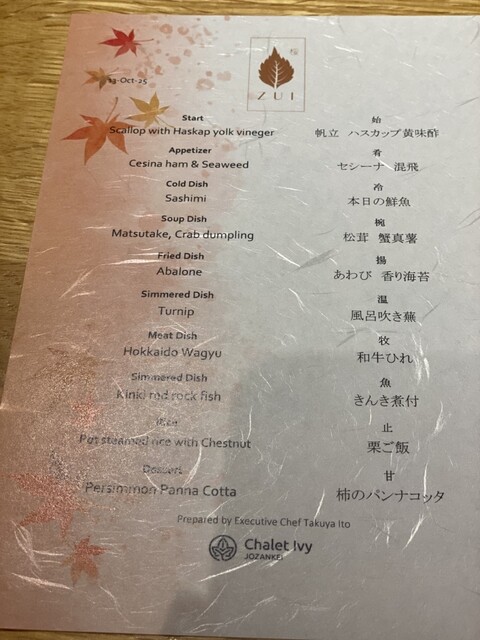 ZUI
13-Oct-25
Start
Scallop with Haskap yolk vineger
始
帆立 ハスカップ黄味酢
Appetizer
Cesina ham & Seaweed
肴
セシーナ 混飛
Cold Dish
Sashimi
冷
本日の鮮魚
Soup Dish
Matsutake, Crab dumpling
椀
松茸 蟹真薯
Fried Dish
Abalone
揚
あわび 香り海苔
Simmered Dish
Turnip
温
風呂吹き蕪
Meat Dish
Hokkaido Wagyu
牧
和牛ひれ
Simmered Dish
Kinki red rock fish
魚
きんき煮付
Rice
Pot steamed rice with Chestnut
止
栗ご飯
Dessert
Persimmon Panna Cotta
甘
柿のパンナコッタ
Prepared by Executive Chef Takuya Ito
Chalet Ivy
JOZANKEI